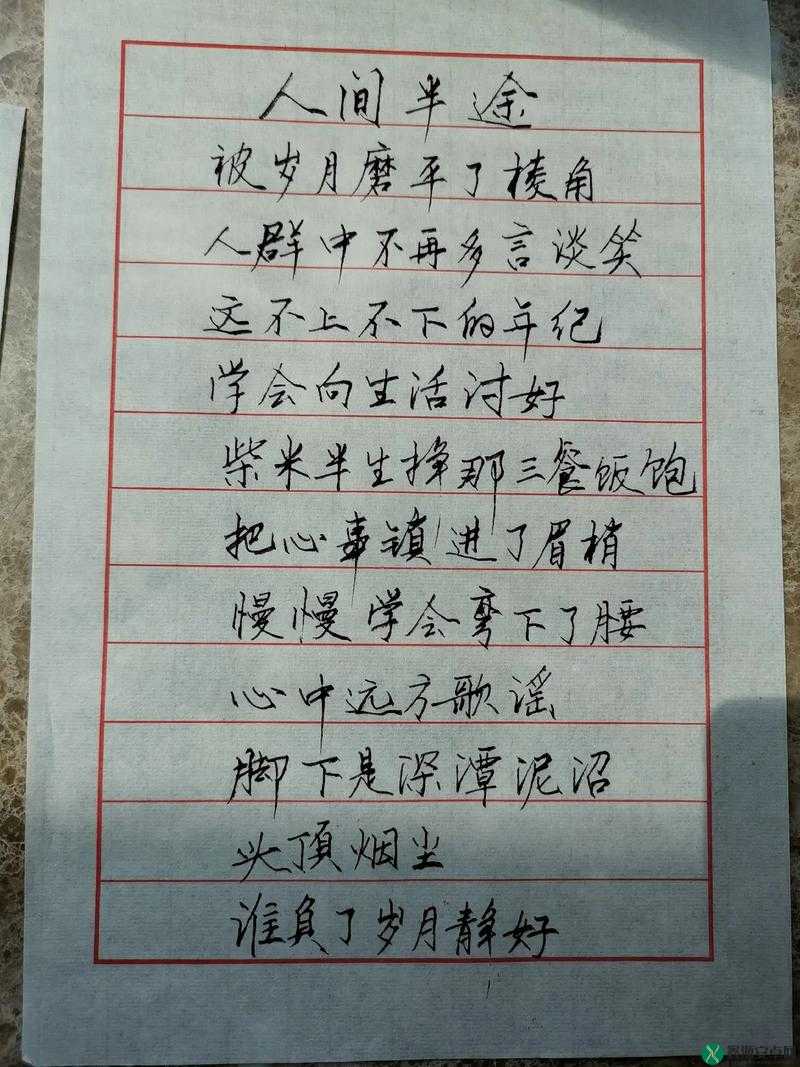 人间半途
被岁月磨平了棱角
人群中不再多言谈笑
这不上不下的年纪
学会向生活讨好
柴米半生挣那三餐饭饱
把心事镇进了眉梢
慢慢学会弯下了腰
心中远方歌谣
脚下是深潭泥沼
头顶烟尘
谁负了岁月静好